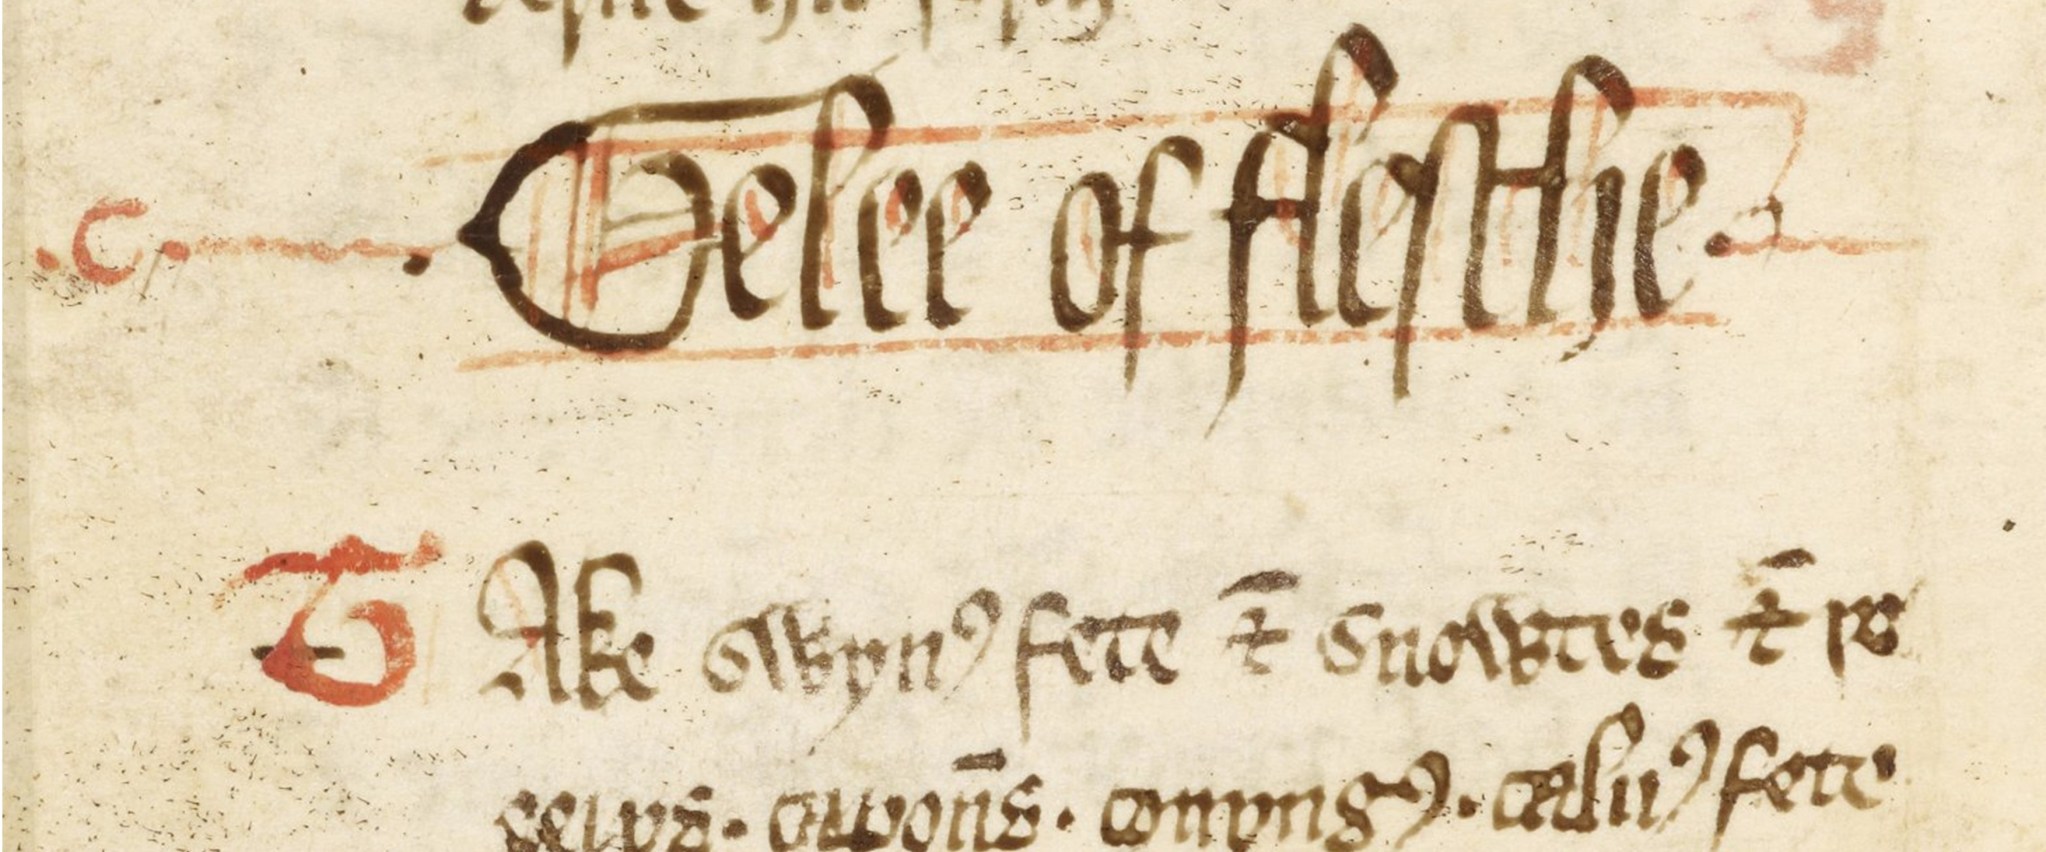 .c. Gelee of flesshe
TAke swynꝰ fete ⁊ snowtes ⁊ þe
eerys. capons. conyngꝰ. caluꝰ fete